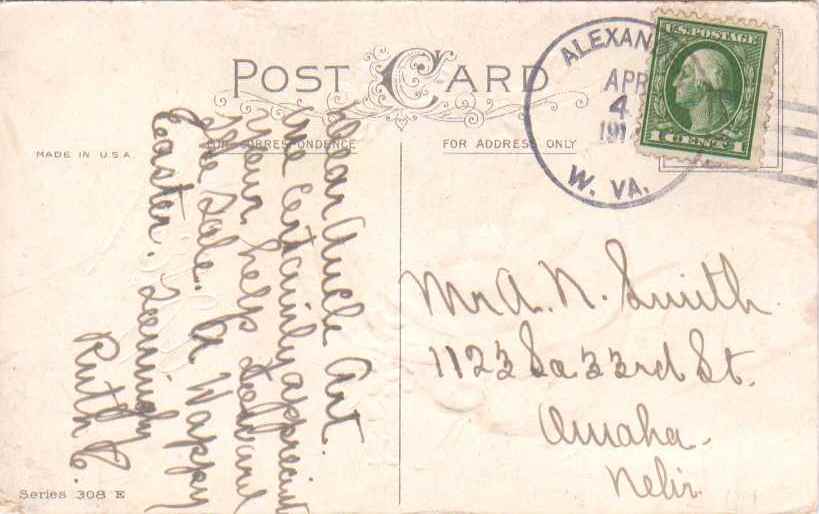 POST CARD
ALEXAN
APR
4
191
W. VA.
U.S. POSTAGE
1 CENT 1
MADE IN U.S.A.
FOR CORRESPONDENCE
FOR ADDRESS ONLY
Dear Uncle Art.
We Certainly appreciat
your help toward
the Sale. A Happy
Easter. Lovingly
Ruth C.
Mr A. N. Smith.
1123 So 33rd St.
Omaha.
Nebr.
Series 308 E